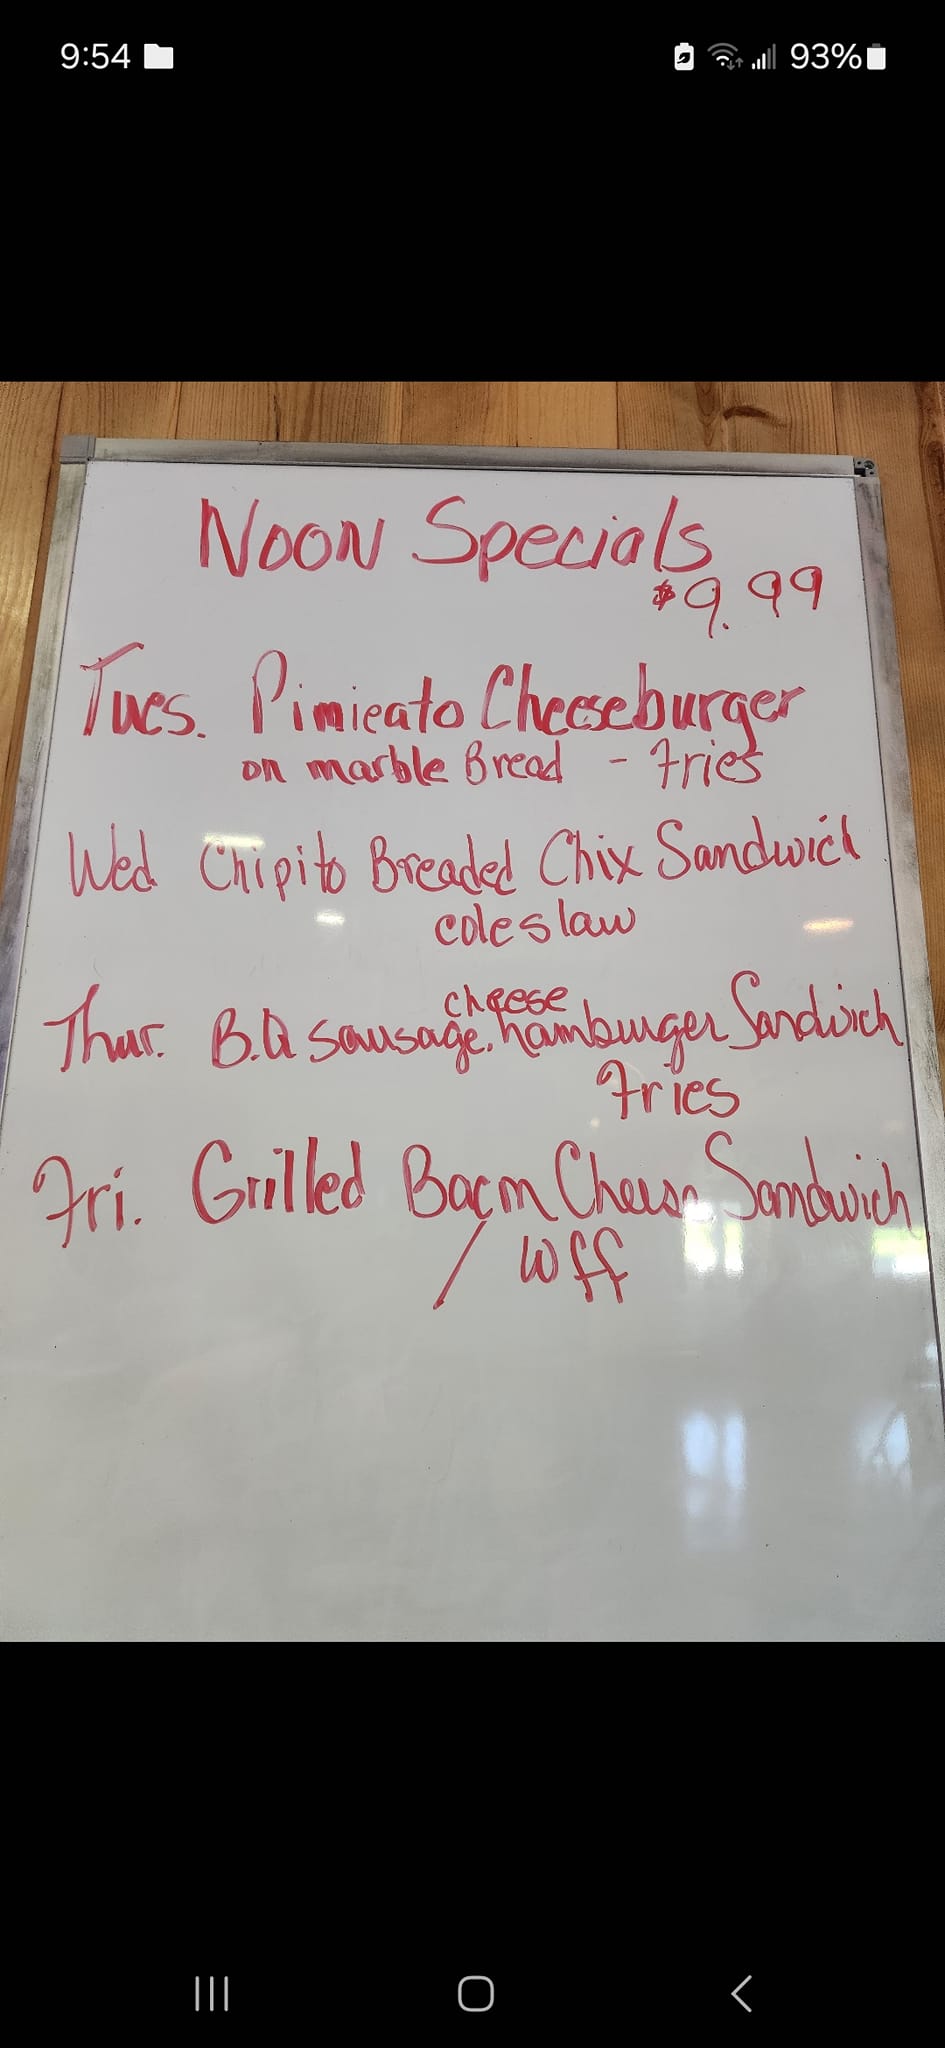 9:54
93%
Noon Specials
$9.99
Tues. Pimieato Cheeseburger
on marble Bread - Fries
Wed Chipito Breaded Chix Sandwich
coleslaw
cheese
Thur. B.Q sausage, hamburger Sandwich
Fries
Fri. Grilled Bacon Cheese Sandwich
/ wff